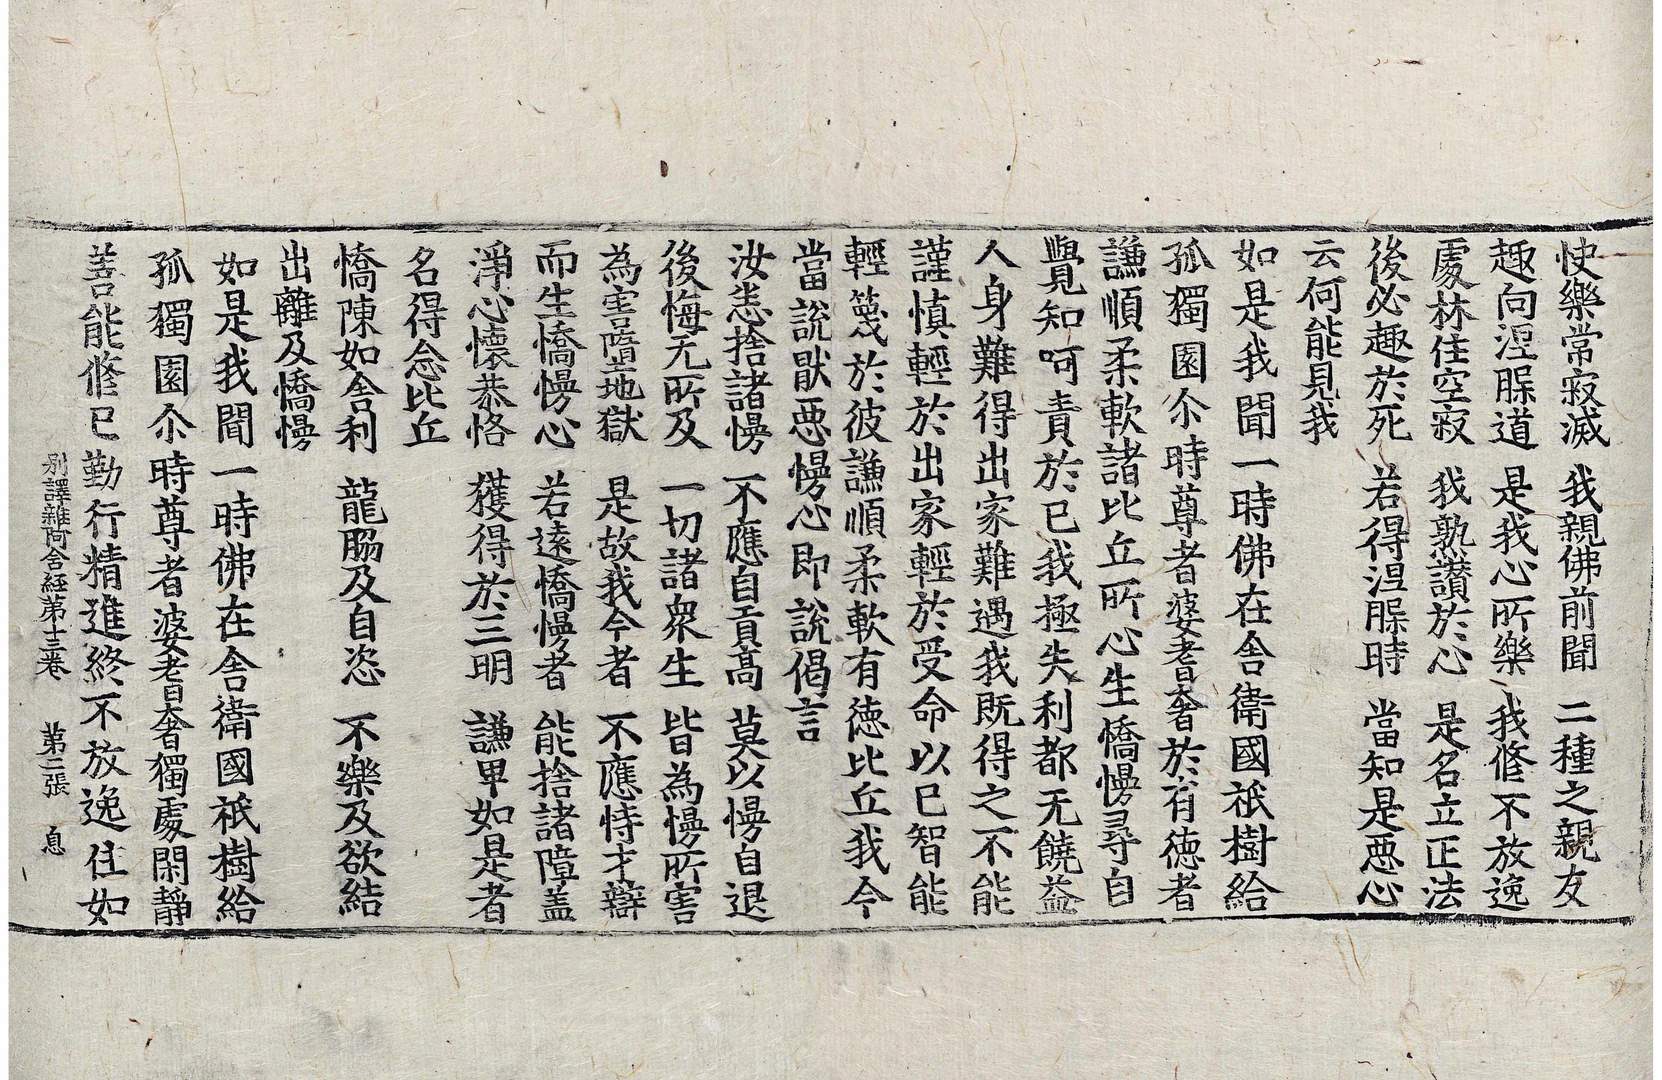 快樂常寂滅 我親佛前聞 二種之親友
趣向涅脲道 是我心所樂 我修不放逸
處林住空寂 我熟讃於心 是名立正法
後必趣於死 若得涅脲時 當知是惡心
云何能見我
如是我聞一時佛在舍衛國祇樹給
孤獨園尒時尊者婆耆奢於有徳者
謙順柔軟諸比丘所心生憍慢尋自
覺知呵責於已我極失利都无饒益
人身難得出家難遇我既得之不能
謹慎輕於出家輕於受命以已智能
輕篾於彼謙順柔軟有徳比丘我今
當說猒惡慢心即說偈言
汝恙捨諸慢 不應自貢髙 莫以慢自退
後悔无所及 一切諸衆生 皆為慢所害
為害墮地獄 是故我今者 不應恃才辯
而生憍慢心 若遠憍慢者 能捨諸障盖
淨心懷恭恪 獲得於三明 謙卑如是者
名得念比丘
憍陳如舍利 龍脇及自恣 不樂及欲結
出離及憍慢
如是我聞一時佛在舍衛國祇樹給
孤獨園尒時尊者婆耆奢獨處閑靜
善能修已勤行精進終不放逸住如
別譯雜阿含經第十三卷 第二張 息